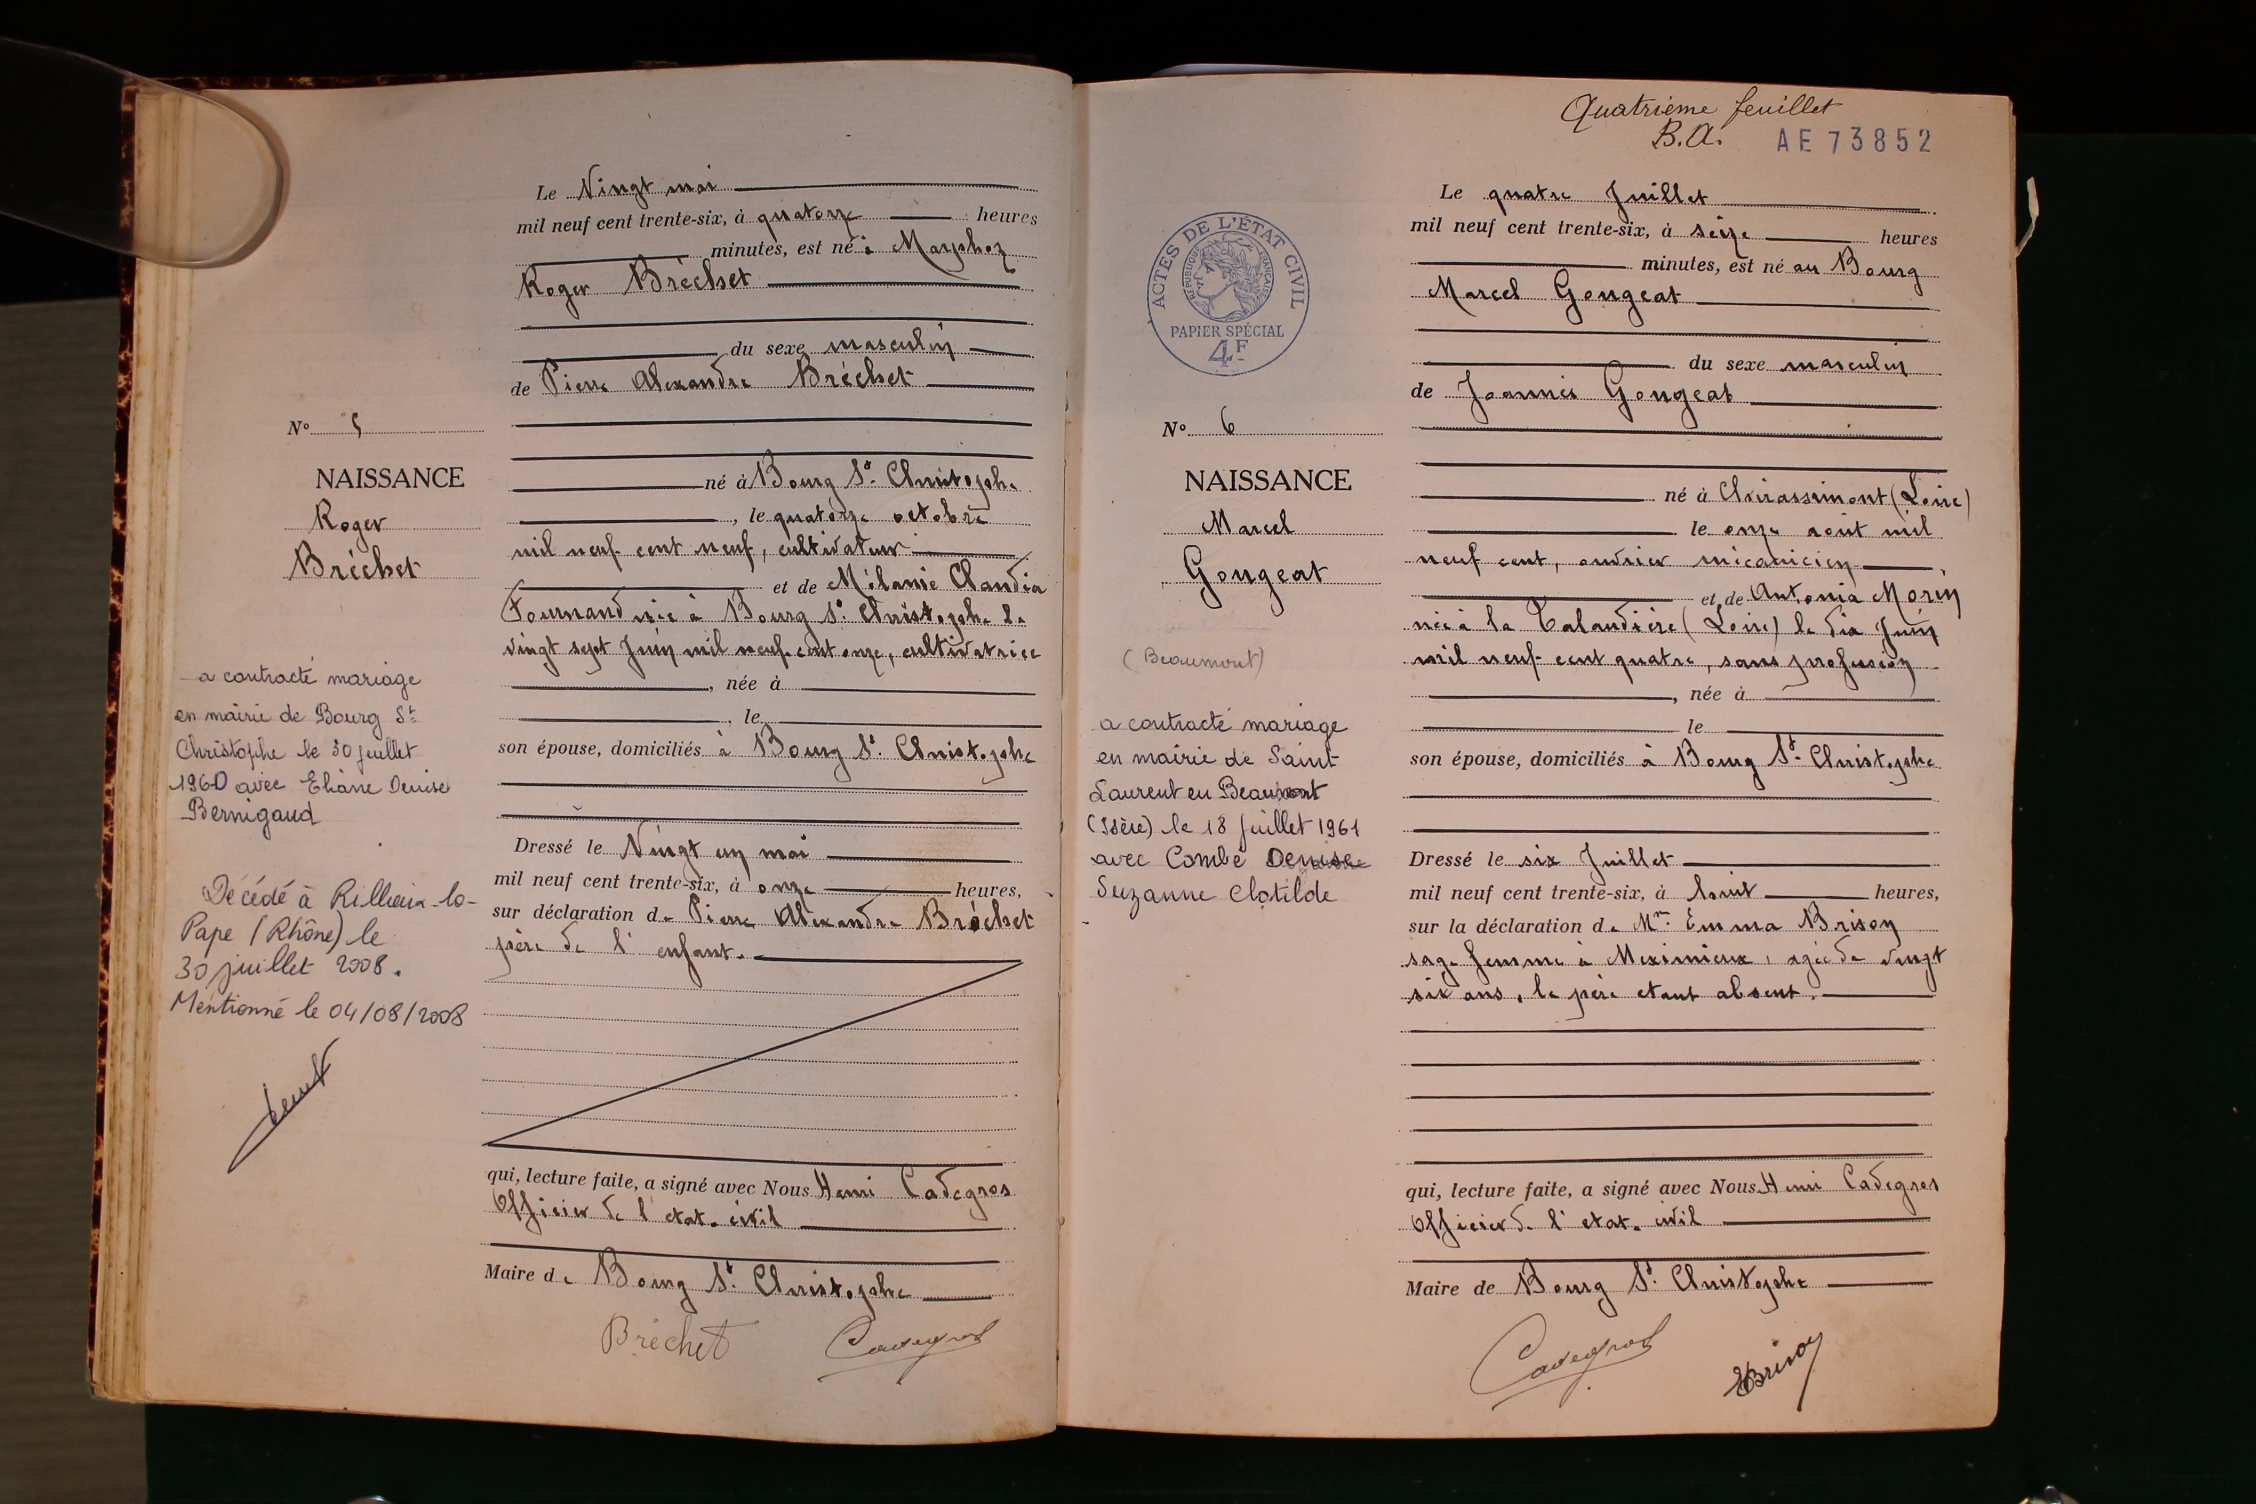 Le Vingt mai
mil neuf cent trente-six, à quatorze heures
minutes, est né à Marphoz
Roger Bréchet
du sexe masculin
de Pierre Alexandre Bréchet
né à Bourg St. Christophe
, le quatorze octobre
mil neuf cent neuf, cultivateur
et de Mélanie Claudia
Fournand née à Bourg St. Christophe le
vingt sept Juin mil neuf cent onze, cultivatrice
, née à
, le
son épouse, domiciliés à Bourg St. Christophe
Dressé le Vingt un mai
mil neuf cent trente-six, à onze heures,
sur déclaration de Pierre Alexandre Bréchet
père de l'enfant.
qui, lecture faite, a signé avec Nous Henri Cadegros
Officier de l'etat-civil
Maire de Bourg St. Christophe
Bréchet Cadegros
N° 5
NAISSANCE
Roger
Bréchet
a contracté mariage
en mairie de Bourg St
Christophe le 30 juillet
1960 avec Eliane Denise
Bernigaud
Décédé à Rillieux-la-
Pape (Rhône) le
30 juillet 2008.
Mentionné le 04/08/2008
Quatrième feuillet
B.A. AE 73852
ACTES DE L'ÉTAT CIVIL
RÉPUBLIQUE FRANÇAISE
PAPIER SPÉCIAL
4F
N° 6
NAISSANCE
Marcel
Gougeat
(Beaumont)
a contracté mariage
en mairie de Saint
Laurent en Beaumont
(Isère) le 18 juillet 1961
avec Combe Denise
Suzanne Clotilde
Le quatre Juillet
mil neuf cent trente-six, à seize heures
minutes, est né au Bourg
Marcel Gougeat
du sexe masculin
de Joannès Gougeat
né à Chirassimont (Loire)
le onze août mil
neuf cent, ouvrier mécanicien
et de Antonia Morin
née à la Talaudière (Loire) le dix Juin
mil neuf cent quatre, sans profession
, née à
le
son épouse, domiciliés à Bourg St. Christophe
Dressé le six Juillet
mil neuf cent trente-six, à huit heures,
sur la déclaration de Me. Emma Brison
sage femme à Meximieux, agée de vingt
six ans, le père etant absent.
qui, lecture faite, a signé avec Nous Henri Cadegros
Officier de l'etat-civil
Maire de Bourg St. Christophe
Cadegros EBrison